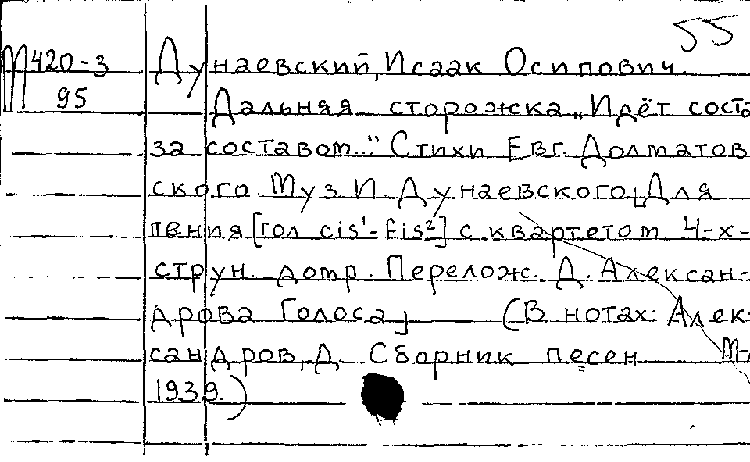 55
М420-3
95
Дунаевский, Исаак Осипович.
Дальняя сторожка „Идёт соста
за составом..." Стихи Евг. Долматов
ского Муз И. Дунаевского [Для
пения [гол cis¹-fis²] с квартетом 4-х-
струн. домр. Перелож. Д. Алексан-
дрова Голоса]   (В нотах: Алек-
сандров, Д. Сборник песен М-
1939.)